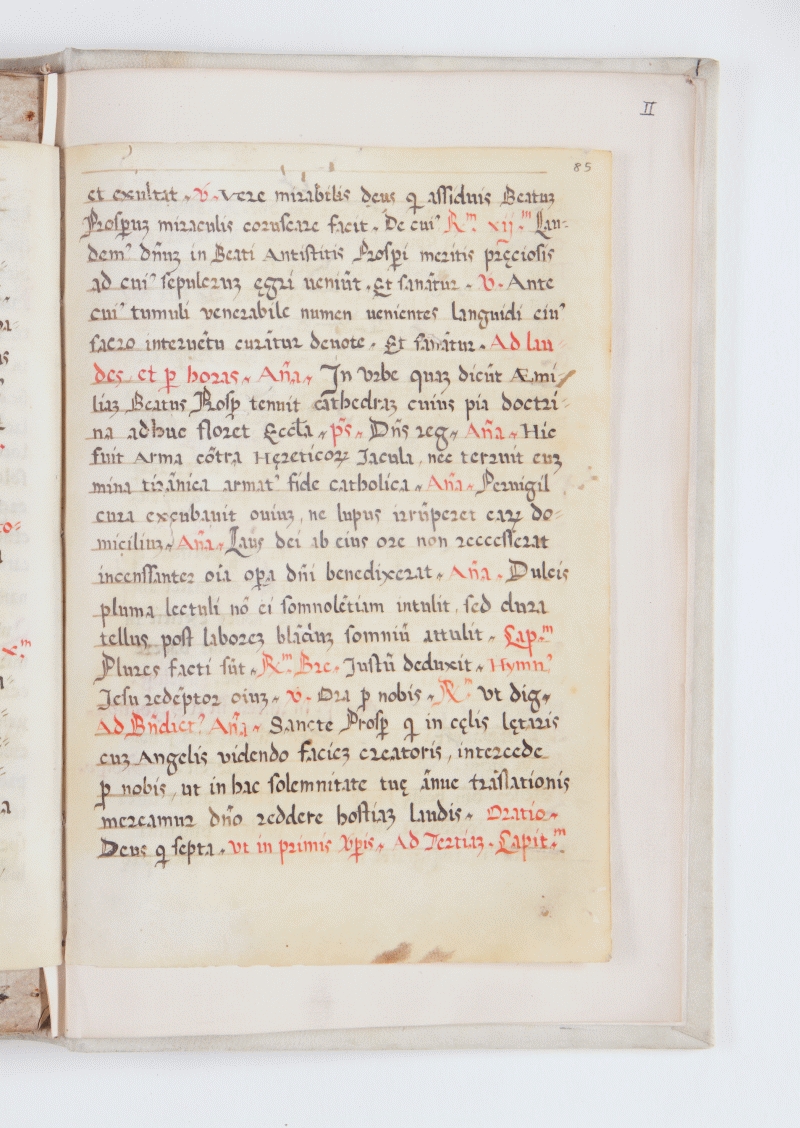 II
85
et exultat. v. Vere mirabilis deus q assiduis Beatuz
Prosperuz miraculis coruscare facit. De cui⁹ R.m xij.m Lau-
dem⁹ dñuz in Beati Antistitis Prosperi meritis pręciosis
ad cui⁹ sepulcruz ęgri veniũt. Et sanãtur. v. Ante
cui⁹ tumuli venerabile numen venientes languidi eiu⁹
sacro interuẽtu curãtur deuote. Et sanãtur. Ad lau-
des et ꝑ horas. Aña. In Vrbe quaz dicũt Æmi-
liaz Beatus Prosꝑ tenuit cathedraz cuius pia doctri-
na adhuc floret Eccła. ps̃. Dñs reg. Aña. Hic
fuit Arma cõtra Hęreticoꝝ Iacula, nec terruit euz
mina tirãnica armat⁹ fide catholica. Aña. Peruigil
cura excubauit ouiuz, ne lupus irrũperet eaꝝ do-
miciliuz. Aña. Laus dei ab eius ore non recesserat
incenssanter oĩa oꝑa dñi benedixerat. Aña. Dulcis
pluma lectuli nõ ei somnolẽtiam intulit, sed dura
tellus post laborez blãduz somniũ attulit. Cap.m
Plures facti sũt. R.m Bre. Iustũ deduxit. Hymn⁹
Iesu redẽptor oĩuz. v. Ora ꝑ nobis. R.m Vt dig.
Ad Bñdict⁹ Aña. Sancte Prosꝑ q in cęlis lętaris
cuz Angelis videndo faciez creatoris, intercede
ꝑ nobis, ut in hac solemnitate tuę ãnue trãslationis
mereamur dño reddere hostiaz laudis. Oratio.
Deus q septa. vt in primis Vꝑis. Ad Tertiaz. Capit.m